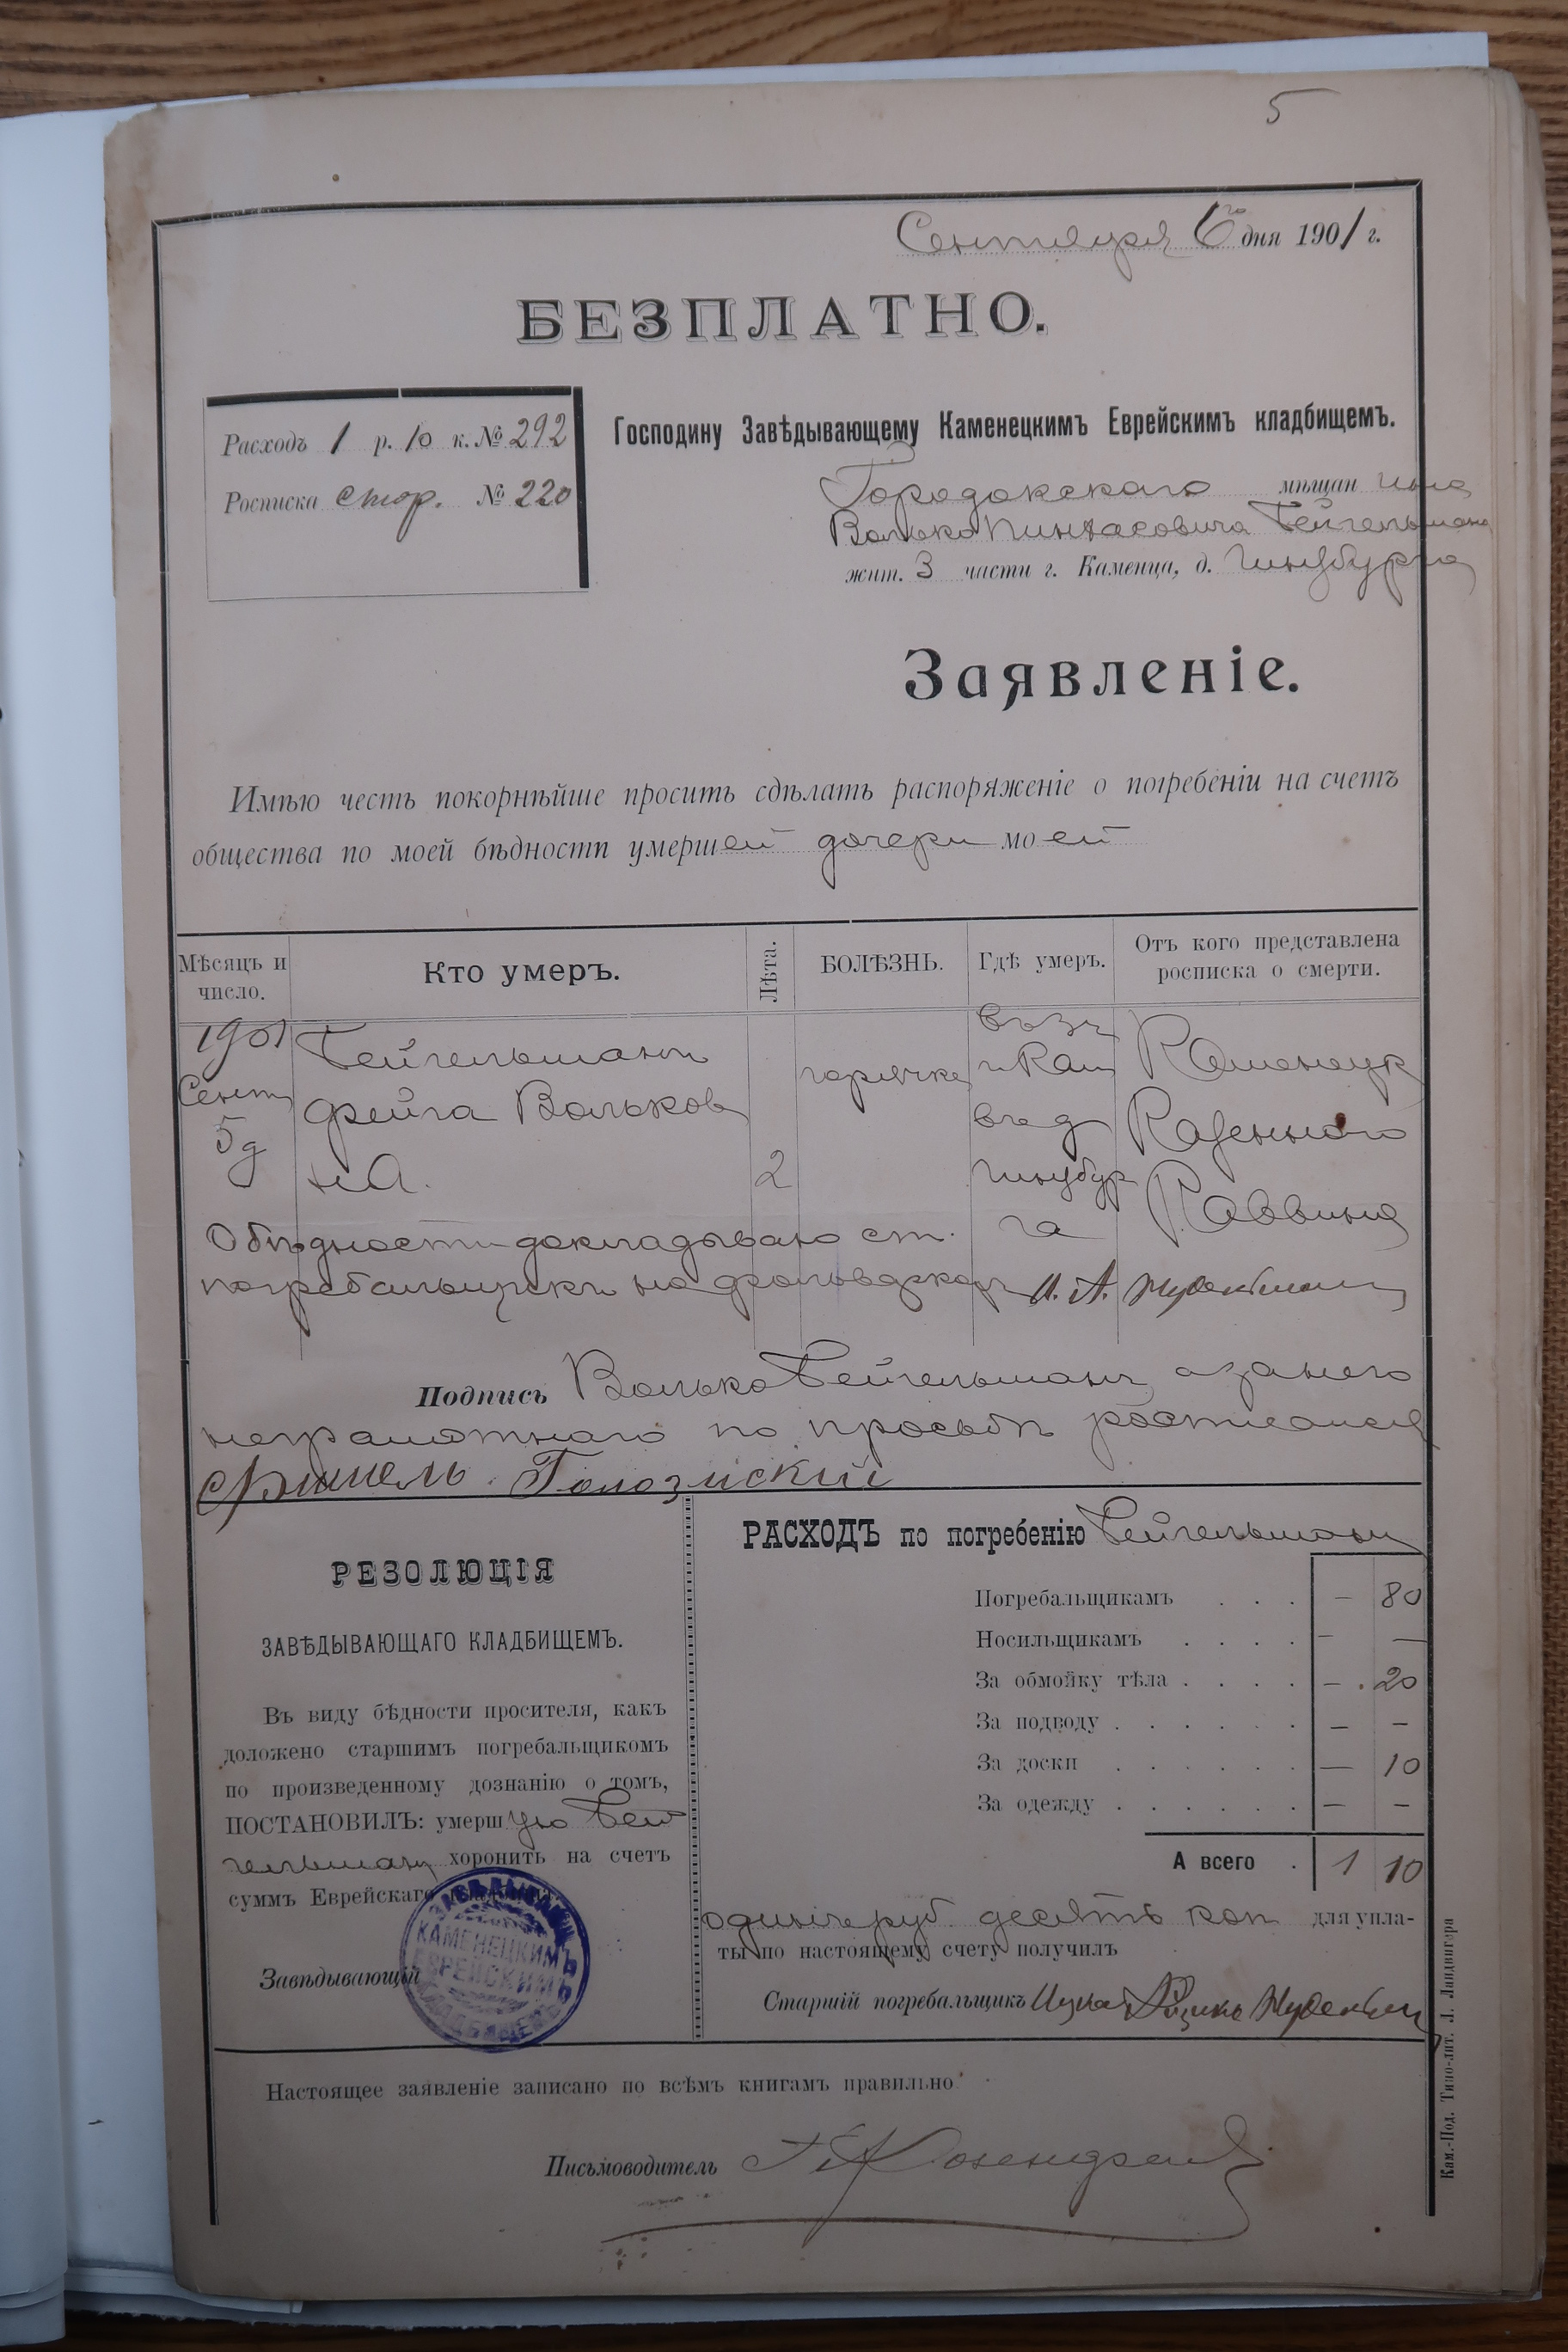 5
Сентября 6го дня 1901 г.
БЕЗПЛАТНО.
Расходъ 1 р. 10 к. № 292
Росписка стор. № 220
Господину Завѣдывающему Каменецкимъ Еврейскимъ кладбищемъ.
Городокскаго мѣщанина
Волько Пинхасовича Бейгельмана
жит. 3 части г. Каменца, д. Гинзбурга
Заявленіе.
Имѣю честь покорнѣйше просить сдѣлать распоряженіе о погребеніи на счетъ
общества по моей бѣдности умершей дочери моей
Мѣсяцъ и число.
Кто умеръ.
Лѣта.
БОЛѢЗНЬ.
Гдѣ умеръ.
Отъ кого представлена росписка о смерти.
1901
Сент
5 д
Бейгельманъ
Фейга Вольков
на.
2
горячка
въ 3 ч
г Кам
в д
Гинзбур
га
Каменецк
Казеннаго
Раввина
О бѣдности докладывано ст.
погребальщикъ
Подпись Волько Бейгельманъ а за него
неграмотнаго по просьбѣ росписался
РЕЗОЛЮЦІЯ
ЗАВѢДЫВАЮЩАГО КЛАДБИЩЕМЪ.
Въ виду бѣдности просителя, какъ
доложено старшимъ погребальщикомъ
по произведенному дознанію о томъ,
ПОСТАНОВИЛЪ: умершую Бей
гельманъ хоронить на счетъ
суммъ Еврейскаго
Завѣдывающій
КАМЕНЕЦКИМЪ
ЕВРЕЙСКИМЪ
РАСХОДЪ по погребенію Бейгельманъ
Погребальщикамъ . . . — 80
Носильщикамъ . . . . — —
За обмойку тѣла . . . . — 20
За подводу . . . . . . — —
За доски . . . . . . — 10
За одежду . . . . . . — —
А всего . 1 10
одинъ руб десять коп для упла-
ты по настоящему счету получилъ
Старшій погребальщикъ
Настоящее заявленіе записано по всѣмъ книгамъ правильно
Письмоводитель
Кам.-Под. Типо-лит. Л. Ландвигера